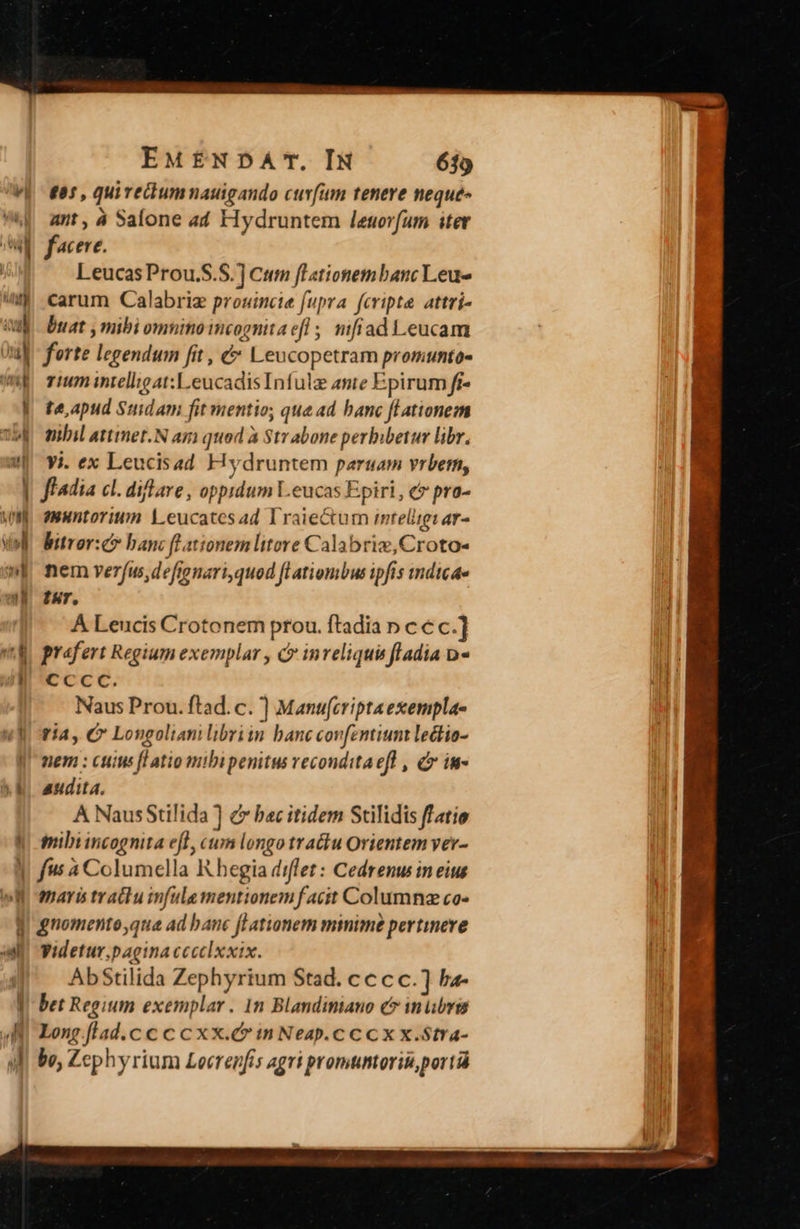 EMENDAT. IN 639
eos, qui rectum nauigando cursum tenere neque-
ant, à Salone ad Hydruntem leuorsum iter
facere.
Leucas Prou.S.S.] Cum stationem hanc Leu-
carum Calabriæ prouinciæ supra scripta attri-
buat, mihi omnino incognita est; nisi ad Leucam
forte legendum sit, & Leucopetram promunto-
rium intelligat: Leucadis Insulæ ante Epirum si-
tæ, apud Suidam fit mentio; quæ ad hanc stationem
nihil attinet. Nam quod à Strabone perhibetur libr.
vi. ex Leucis ad Hydruntem paruam vrbem,
stadia cl. distare, oppidum Leucas Epiri, & pro-
muntorium Leucates ad Traiectum intelligi ar-
bitror: & hanc stationem litore Calabriæ, Croto-
nem versus, designari, quod stationibus ipsis indica-
tur.
A Leucis Crotonem prou. stadia Dccc.]
præfert Regium exemplar, & in reliquis stadia D-
CCCC.
Naus Prou. stad. c. ] Manuscripta exempla-
ria, & Longoliani libri in hanc consentiunt lectio-
nem: cuius statio mihi penitus recondita est, & in-
audita.
A Naus Stilida ] & hæc itidem Stilidis statio
mihi incognita est, cum longo tractu Orientem ver-
sus à Columella Rhegia distet: Cedrenus in eius
maris tractu insulæ mentionem facit Columnæ co-
gnomento, quæ ad hanc stationem minimè pertinere
videtur, pagina cccclxxix.
Ab Stilida Zephyrium Stad. cccc.] ha-
bet Regium exemplar. In Blandiniano & in libris
Long. stad. CCCCXX. & in Neap. CCCXX. Stra-
bo, Zephyrium Locrensis agri promuntoriū, portū